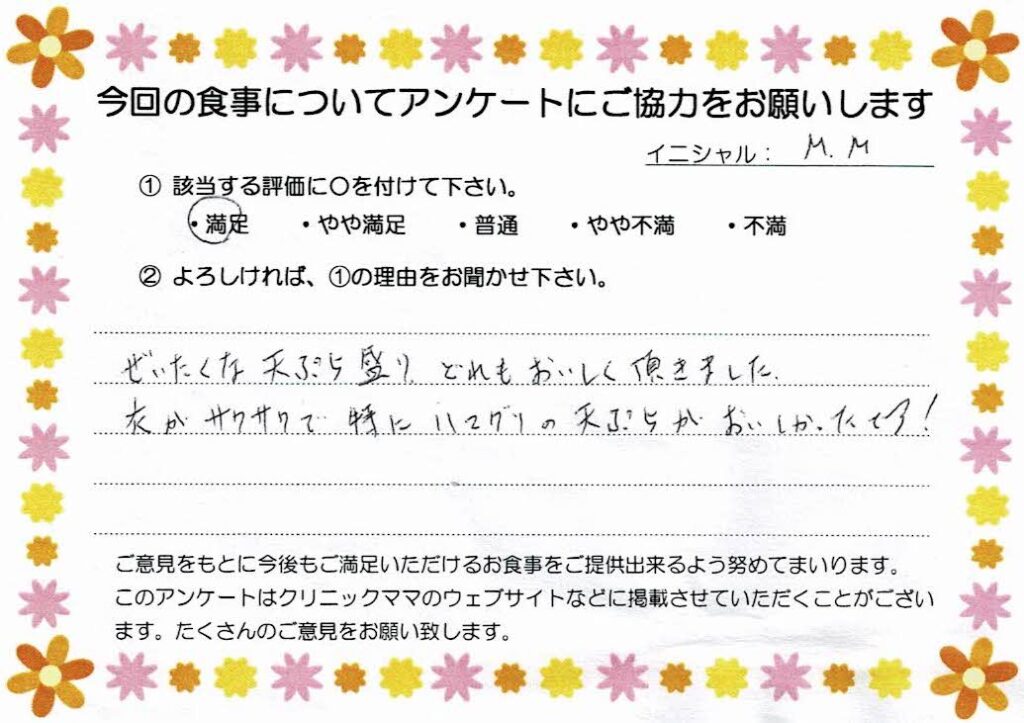 今回の食事についてアンケートにご協力をお願いします
イニシャル： M.M
① 該当する評価に〇を付けて下さい。
・満足 ・やや満足 ・普通 ・やや不満 ・不満
② よろしければ、①の理由をお聞かせ下さい。
ぜいたくな天ぷら盛り、どれもおいしく頂きました。
衣がサクサクで特にハマグリの天ぷらがおいしかったです!
ご意見をもとに今後もご満足いただけるお食事をご提供出来るよう努めてまいります。
このアンケートはクリニックママのウェブサイトなどに掲載させていただくことがござい
ます。たくさんのご意見をお願い致します。